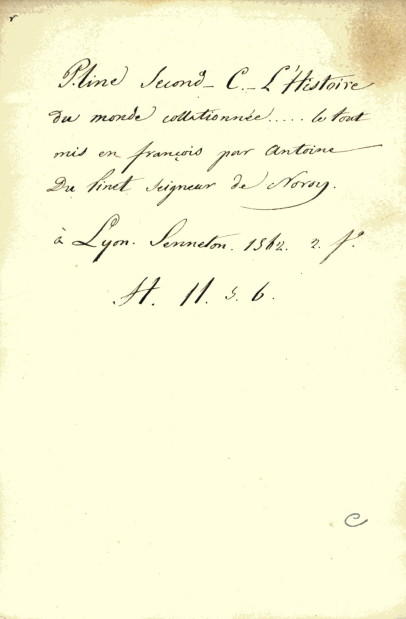 Pline Second - C. - L'Histoire
du monde collationnée ..... le tout
mis en françois par Antoine
Du Pinet Seigneur de Noroy.
à Lyon. Senneton. 1562. 2. f°.
H. 11. 5. 6.
C